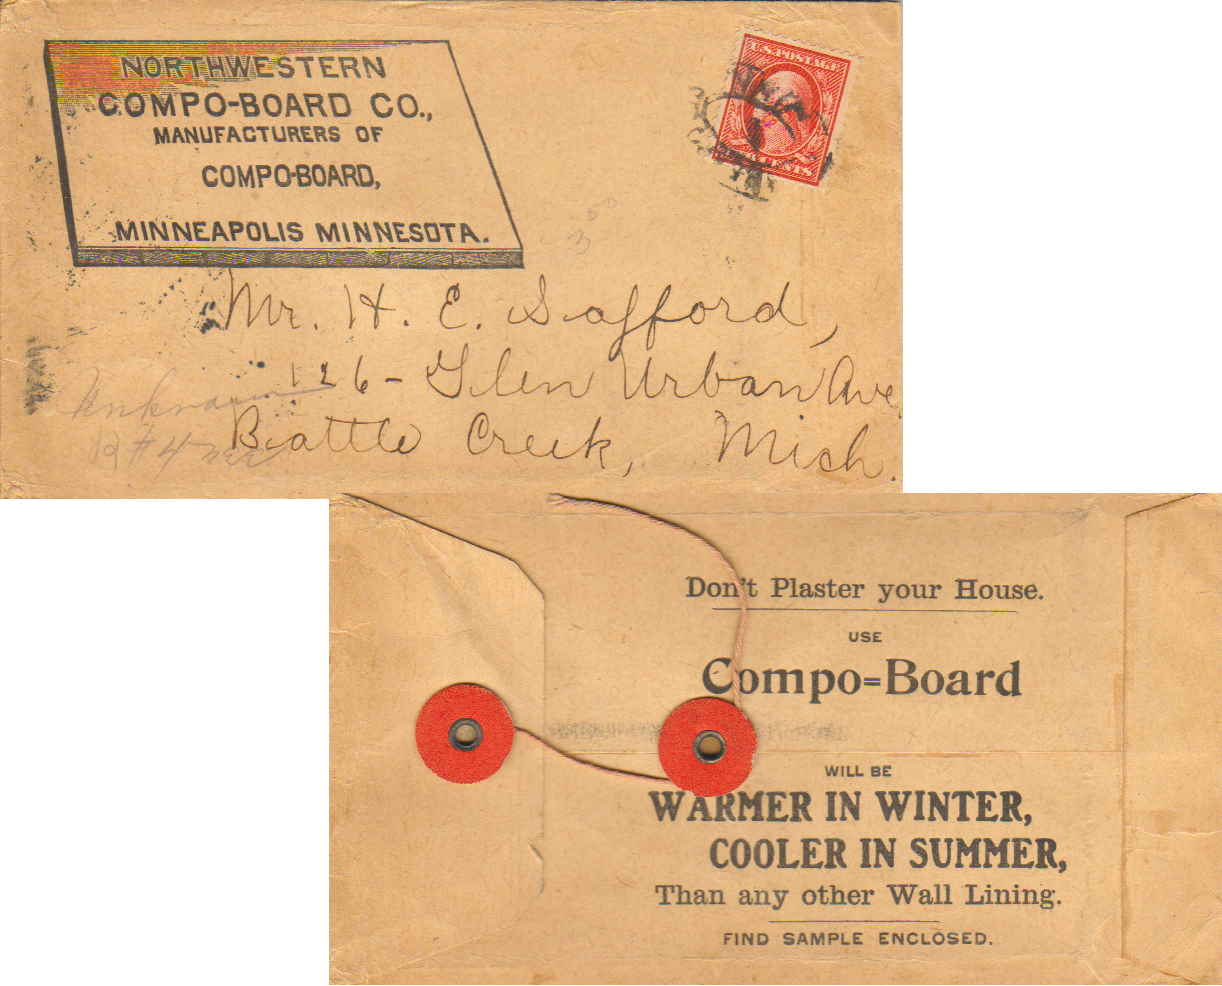 NORTHWESTERN
COMPO-BOARD CO.,
MANUFACTURERS OF
COMPO-BOARD,
MINNEAPOLIS MINNESOTA.
U.S. POSTAGE
2 CENTS 2
Mr. H. E. Safford,
126 - Glen Urban Ave
Battle Creek, Mich.
Unknown
R#4
Don't Plaster your House.
USE
Compo=Board
WILL BE
WARMER IN WINTER,
COOLER IN SUMMER,
Than any other Wall Lining.
FIND SAMPLE ENCLOSED.